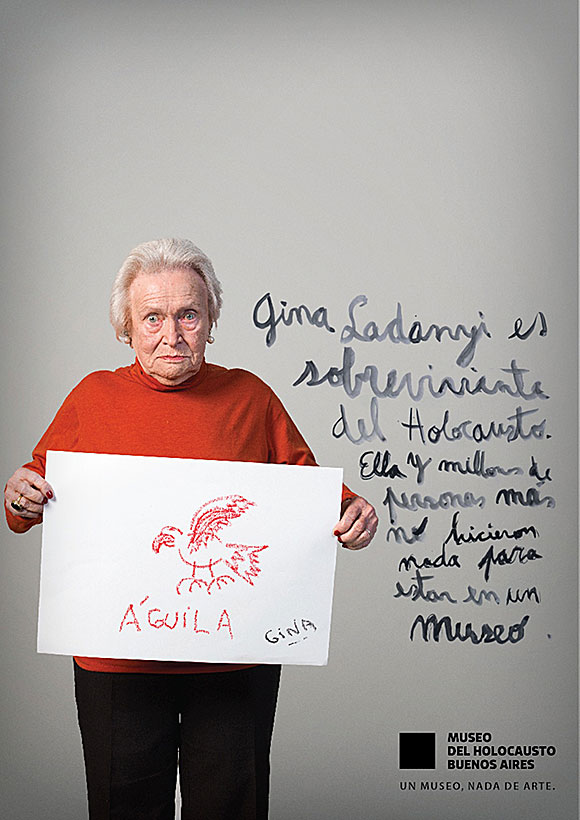 Gina Ladányi es
sobreviviente
del Holocausto.
Ella y millones de
personas más
no hicieron
nada para
estar en un
Museo.
ÁGUILA
GINA
MUSEO
DEL HOLOCAUSTO
BUENOS AIRES
UN MUSEO, NADA DE ARTE.